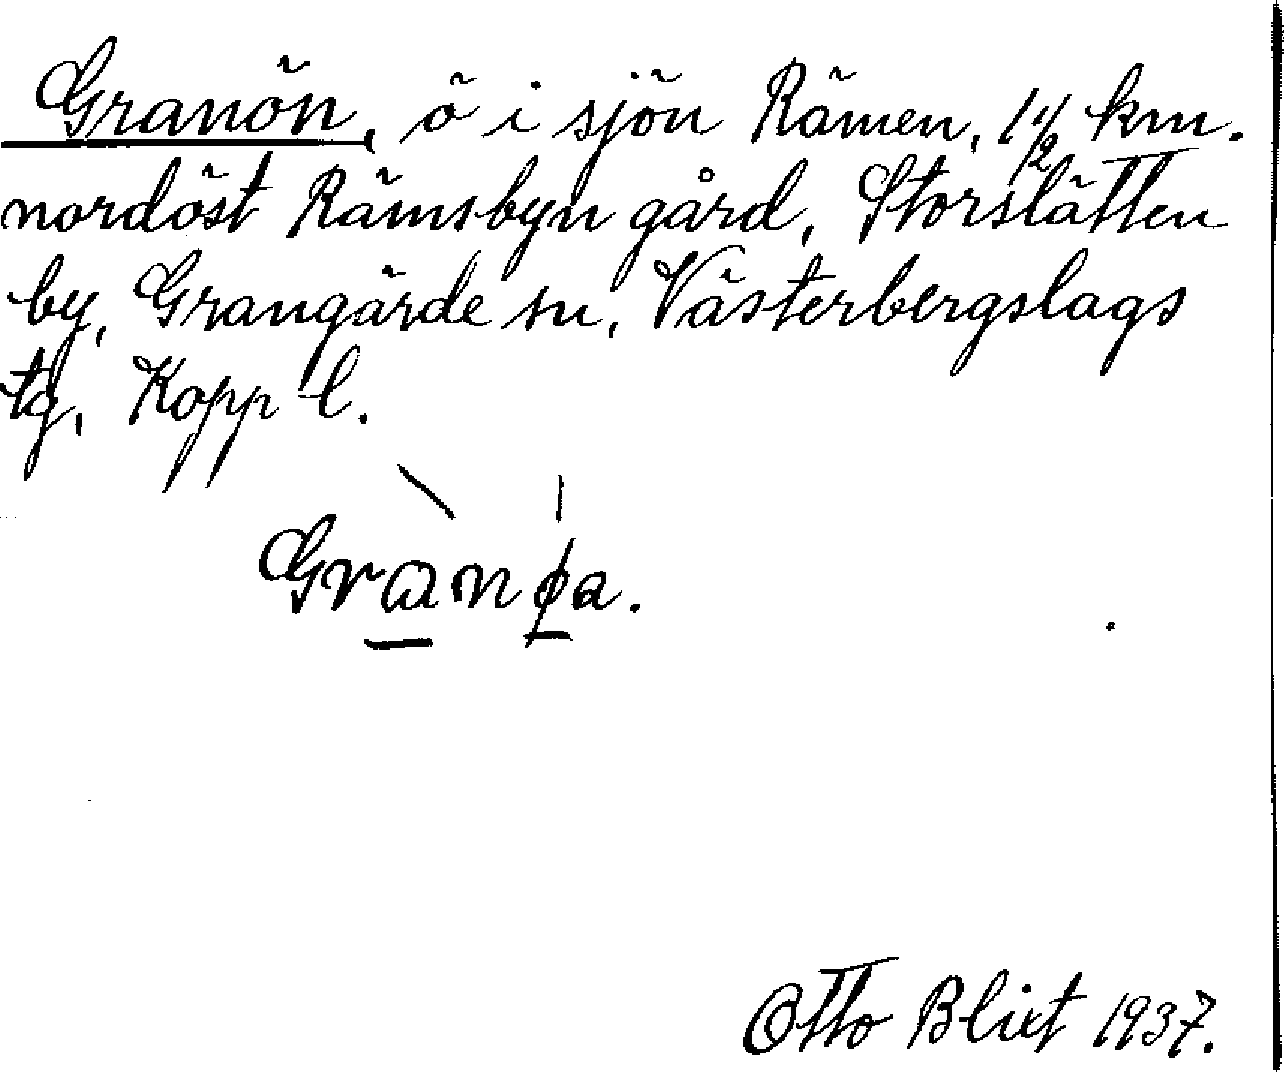 Granön, ö i sjön Rämen, 1 1/2 km.
nordöst Rämsbyn gård, Storslätten
by, Grangärde sn, Västerbergslags
tg, Kopp l.
Granøa.
Otto Blixt 1937.